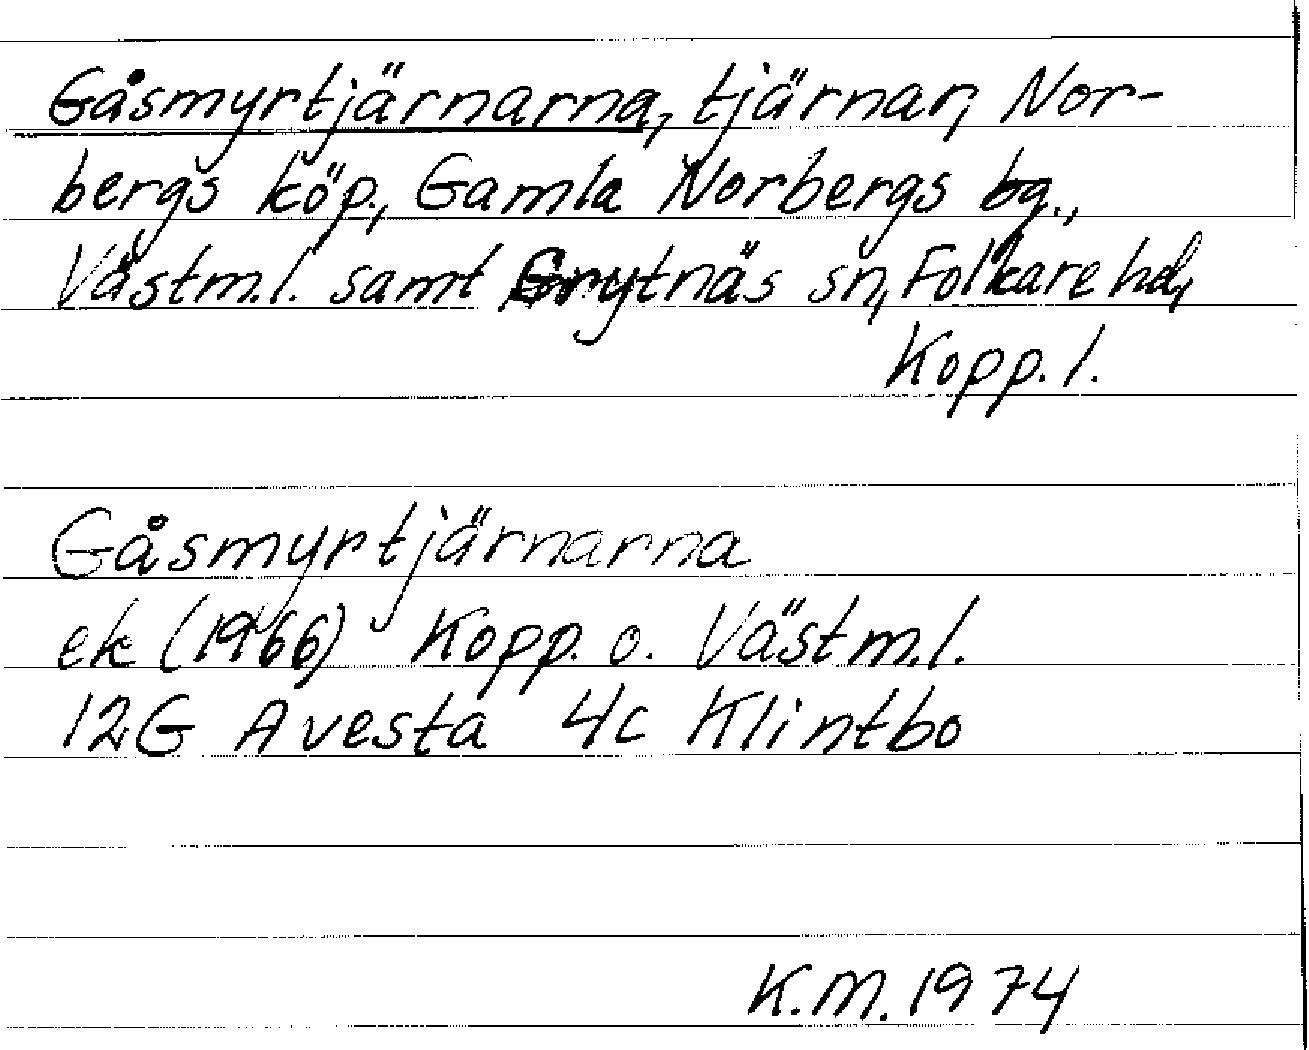 Gåsmyrtjärnarna, tjärnar, Nor-
bergs köp., Gamla Norbergs bg.,
Västm.l. samt Grytnäs sn, Folkare hd,
Kopp.l.
Gåsmyrtjärnarna
ek (1966) Kopp. o. Västm.l.
12G Avesta 4c Klintbo
K.M. 1974